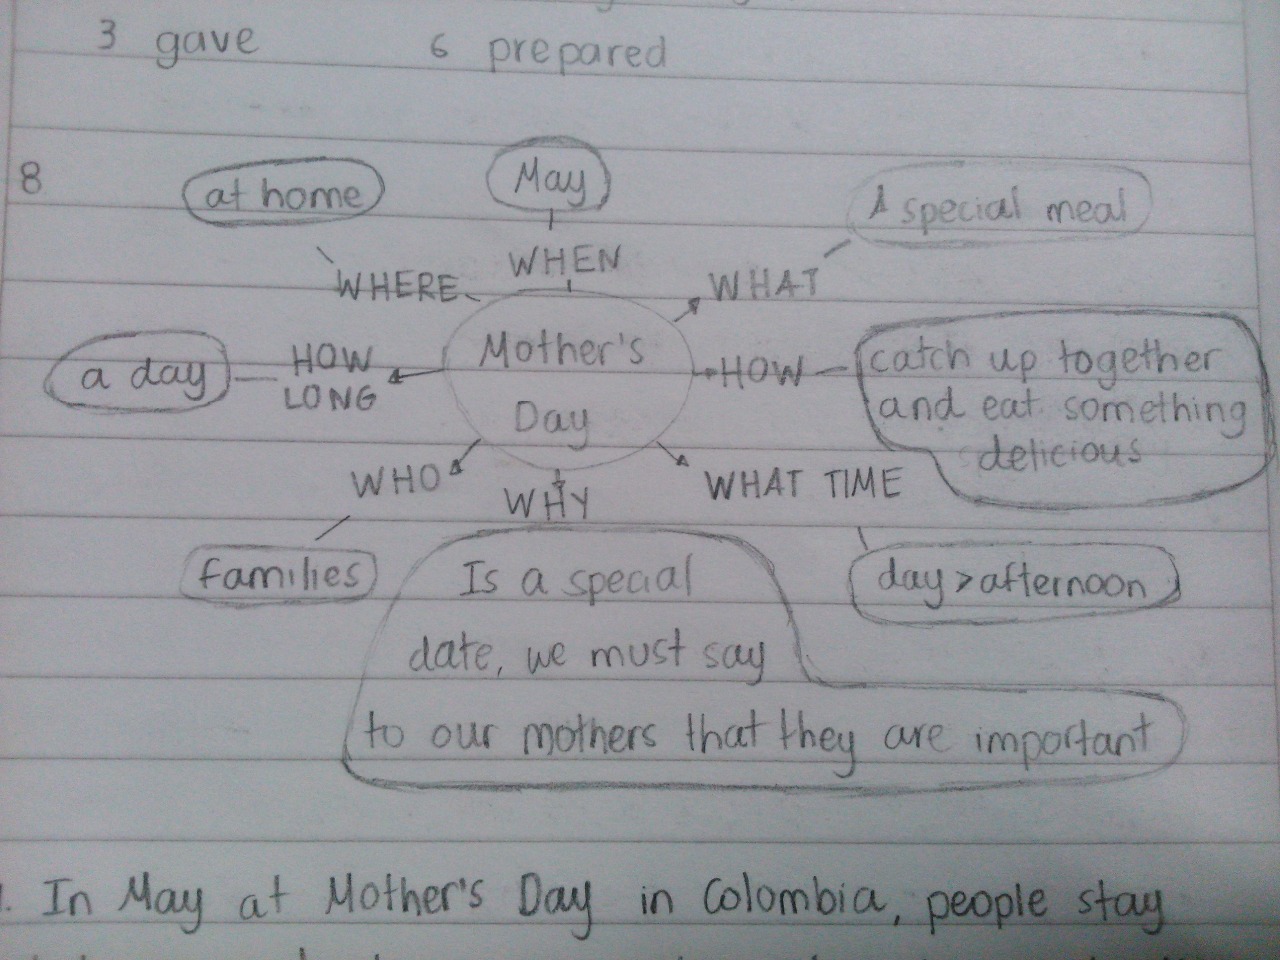 3 gave 6 prepared
8
at home
May
A special meal
WHERE
WHEN
WHAT
a day
HOW
LONG
Mother's
Day
HOW
catch up together
and eat something
delicious
WHO
WHY
WHAT TIME
families
Is a special
date, we must say
to our mothers that they are important
day > afternoon
In May at Mother's Day in Colombia, people stay